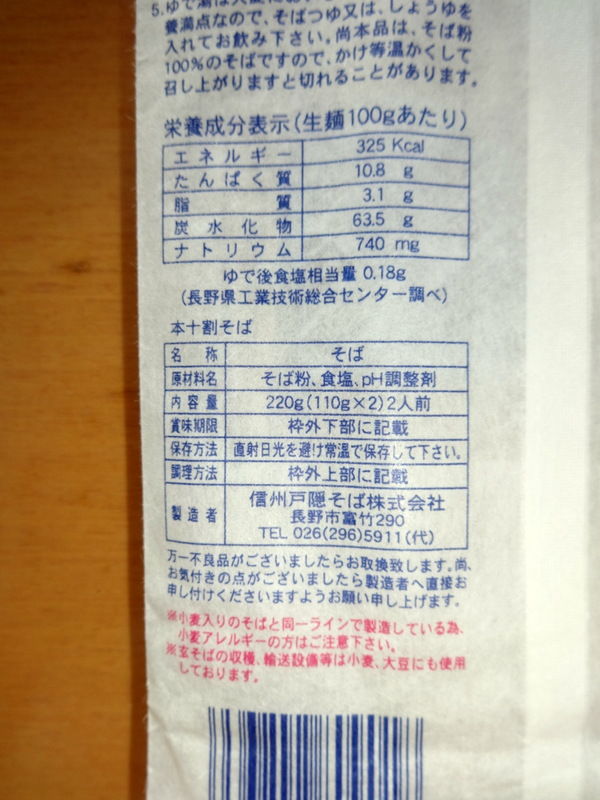 5.ゆで湯は大変に
養満点なので、そばつゆ又は、しょうゆを
入れてお飲み下さい。尚本品は、そば粉
100%のそばですので、かけ等温かくして
召し上がりますと切れることがあります。
栄養成分表示(生麺100gあたり)
エネルギー 325 Kcal
たんぱく質 10.8 g
脂質 3.1 g
炭水化物 63.5 g
ナトリウム 740 mg
ゆで後食塩相当量 0.18g
(長野県工業技術総合センター調べ)
本十割そば
名称 そば
原材料名 そば粉、食塩、pH調整剤
内容量 220g(110g×2)2人前
賞味期限 枠外下部に記載
保存方法 直射日光を避け常温で保存して下さい。
調理方法 枠外上部に記載
製造者 信州戸隠そば株式会社
長野市富竹290
TEL 026(296)5911(代)
万一不良品がございましたらお取換致します。尚、
お気付きの点がございましたら製造者へ直接お
申し付けくださいますようお願い申し上げます。
※小麦入りのそばと同一ラインで製造している為、
小麦アレルギーの方はご注意下さい。
※玄そばの収穫、輸送設備等は小麦、大豆にも使用
しております。